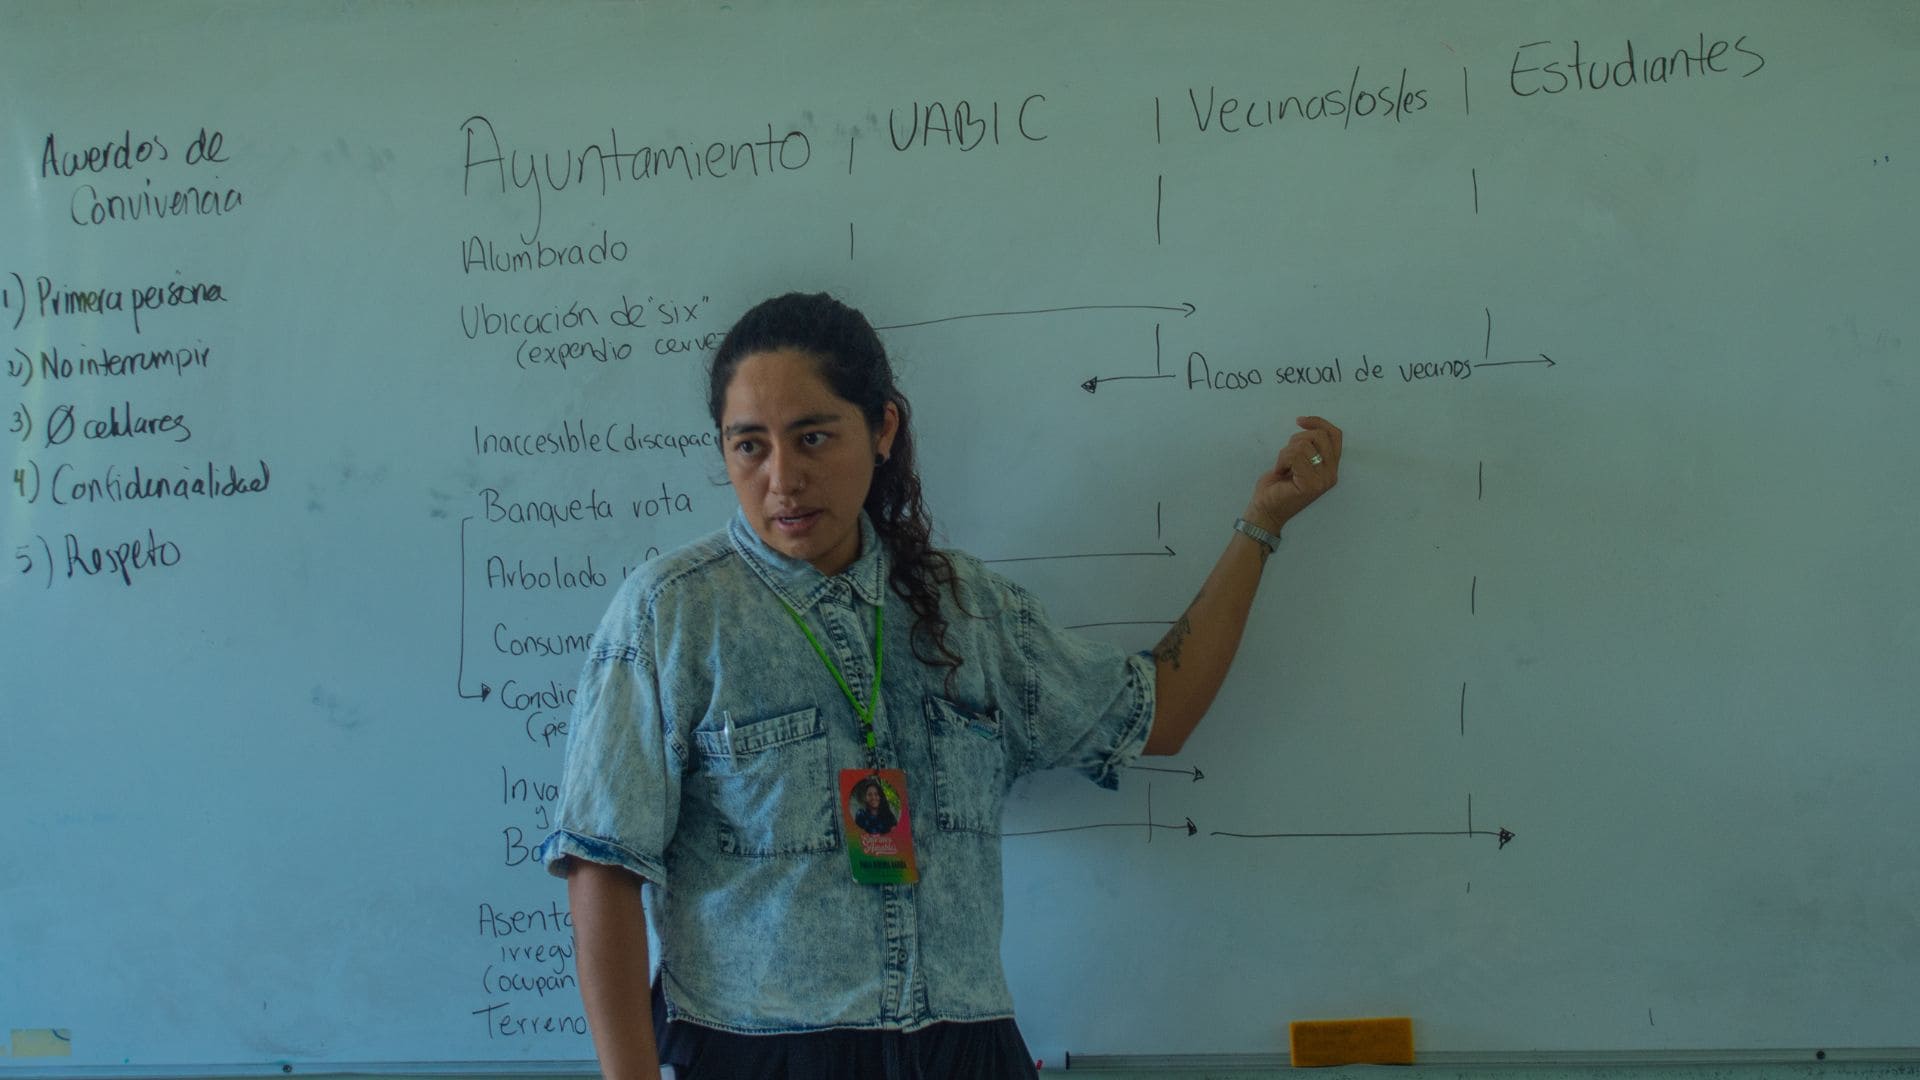 Acuerdos de
Convivencia
1) Primera persona
2) No interrumpir
3) Ø celulares
4) Confidencialidad
5) Respeto
Ayuntamiento | UABIC | Vecinas/os/es | Estudiantes
Alumbrado
Ubicación de "six"
(expendio cerve
Acoso sexual de vecinos
Inaccesible (discapac
Banqueta rota
Arbolado
Consumo
Condic
(pie
Inva
y
Ba
Asenta
irregu
(ocupan
Terreno